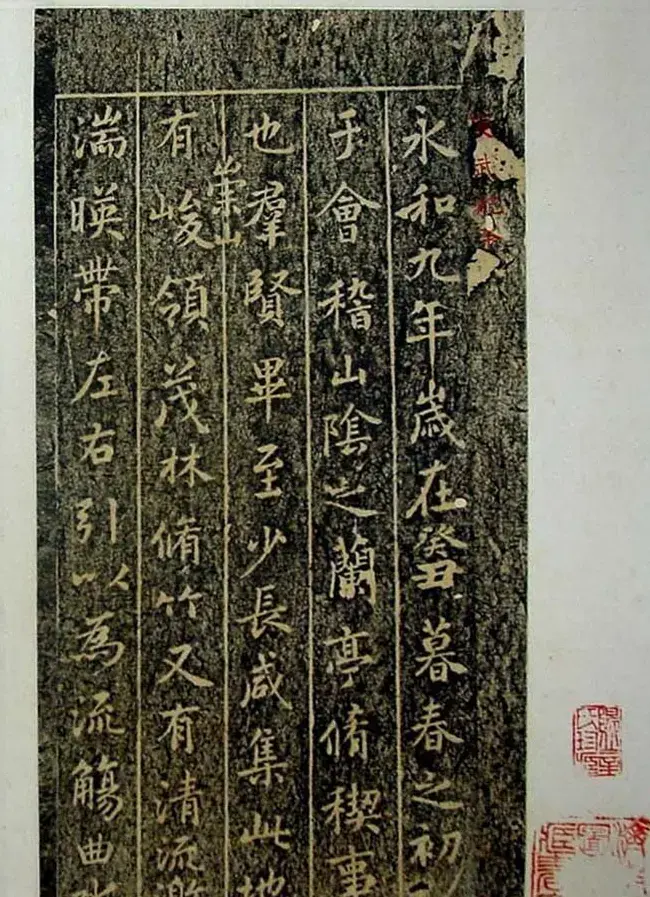 永和九年歲在癸丑暮春之初
于會稽山陰之蘭亭脩稧事
也羣賢畢至少長咸集此地
崇山
有峻領茂林脩竹又有清流激
湍暎帶左右引以為流觴曲